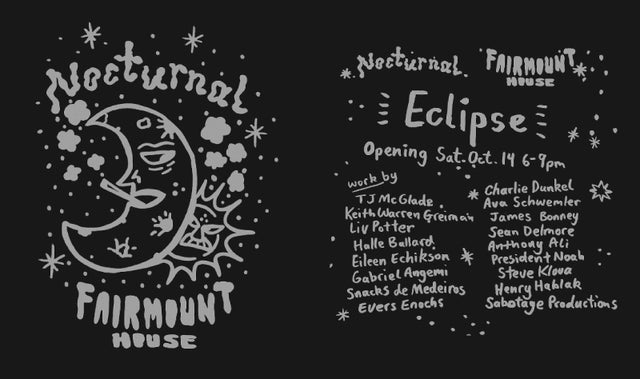 Nocturnal
FAIRMOUNT
HOUSE
Nocturnal
FAIRMOUNT
HOUSE
Eclipse
Opening Sat. Oct. 14 6-9pm
work by
TJ McGlade
Keith Warren Greiman
Liv Potter
Halle Ballard
Eileen Echikson
Gabriel Angemi
Snacks de Medeiros
Evers Enochs
Charlie Dunkel
Ava Schwemler
James Bonney
Sean Delmore
Anthony Ali
President Noah
Steve Klova
Henry Hablak
Sabotage Productions